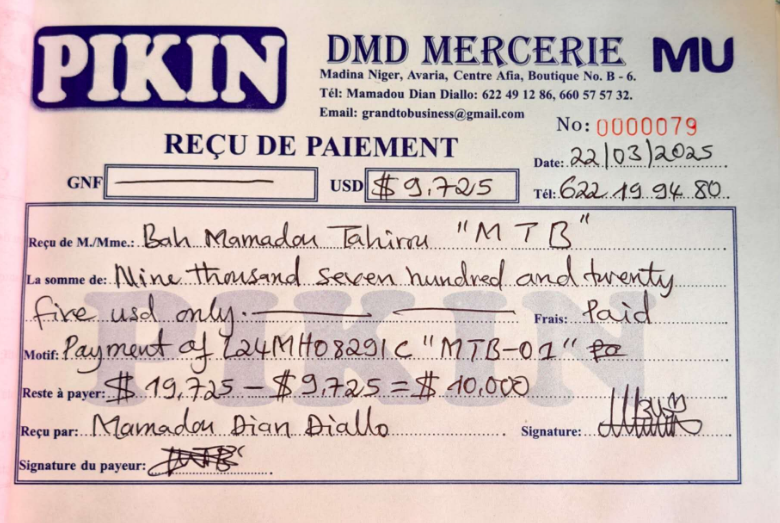 PIKIN
DMD MERCERIE MU
Madina Niger, Avaria, Centre Afia, Boutique No. B - 6.
Tél: Mamadou Dian Diallo: 622 49 12 86, 660 57 57 32.
Email: grandtobusiness@gmail.com
No: 0000079
REÇU DE PAIEMENT
Date: 22/03/2025
GNF USD $ 9,725 Tél: 622 19 94 80
Reçu de M./Mme.: Bah Mamadou Tahirou "MTB"
La somme de: Nine thousand seven hundred and twenty
five usd only. Frais: Paid
PIKIN
Motif: Payment of L24MH08291C "MTB-01"
Reste à payer: $ 19,725 - $ 9,725 = $ 10,000
Reçu par: Mamadou Dian Diallo Signature:
Signature du payeur: MTB